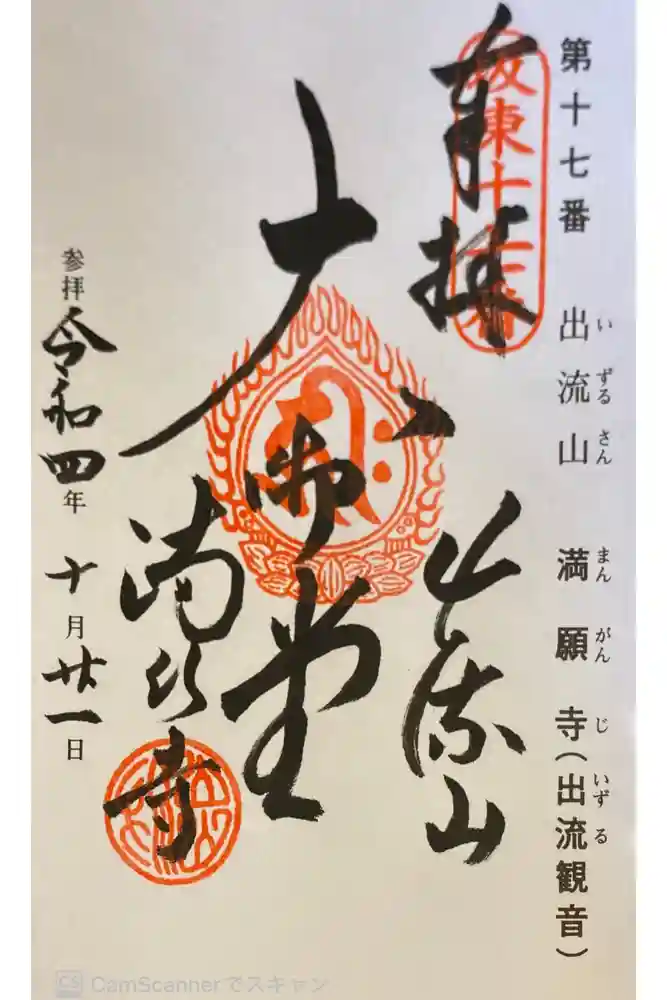 第十七番 出流山 満願寺(出流観音)
いずるさん まんがんじ いずる
奉拝
坂東十七番
出流山
大御堂
満願寺
参拝 令和四年 十月廿一日
CS CamScannerでスキャン